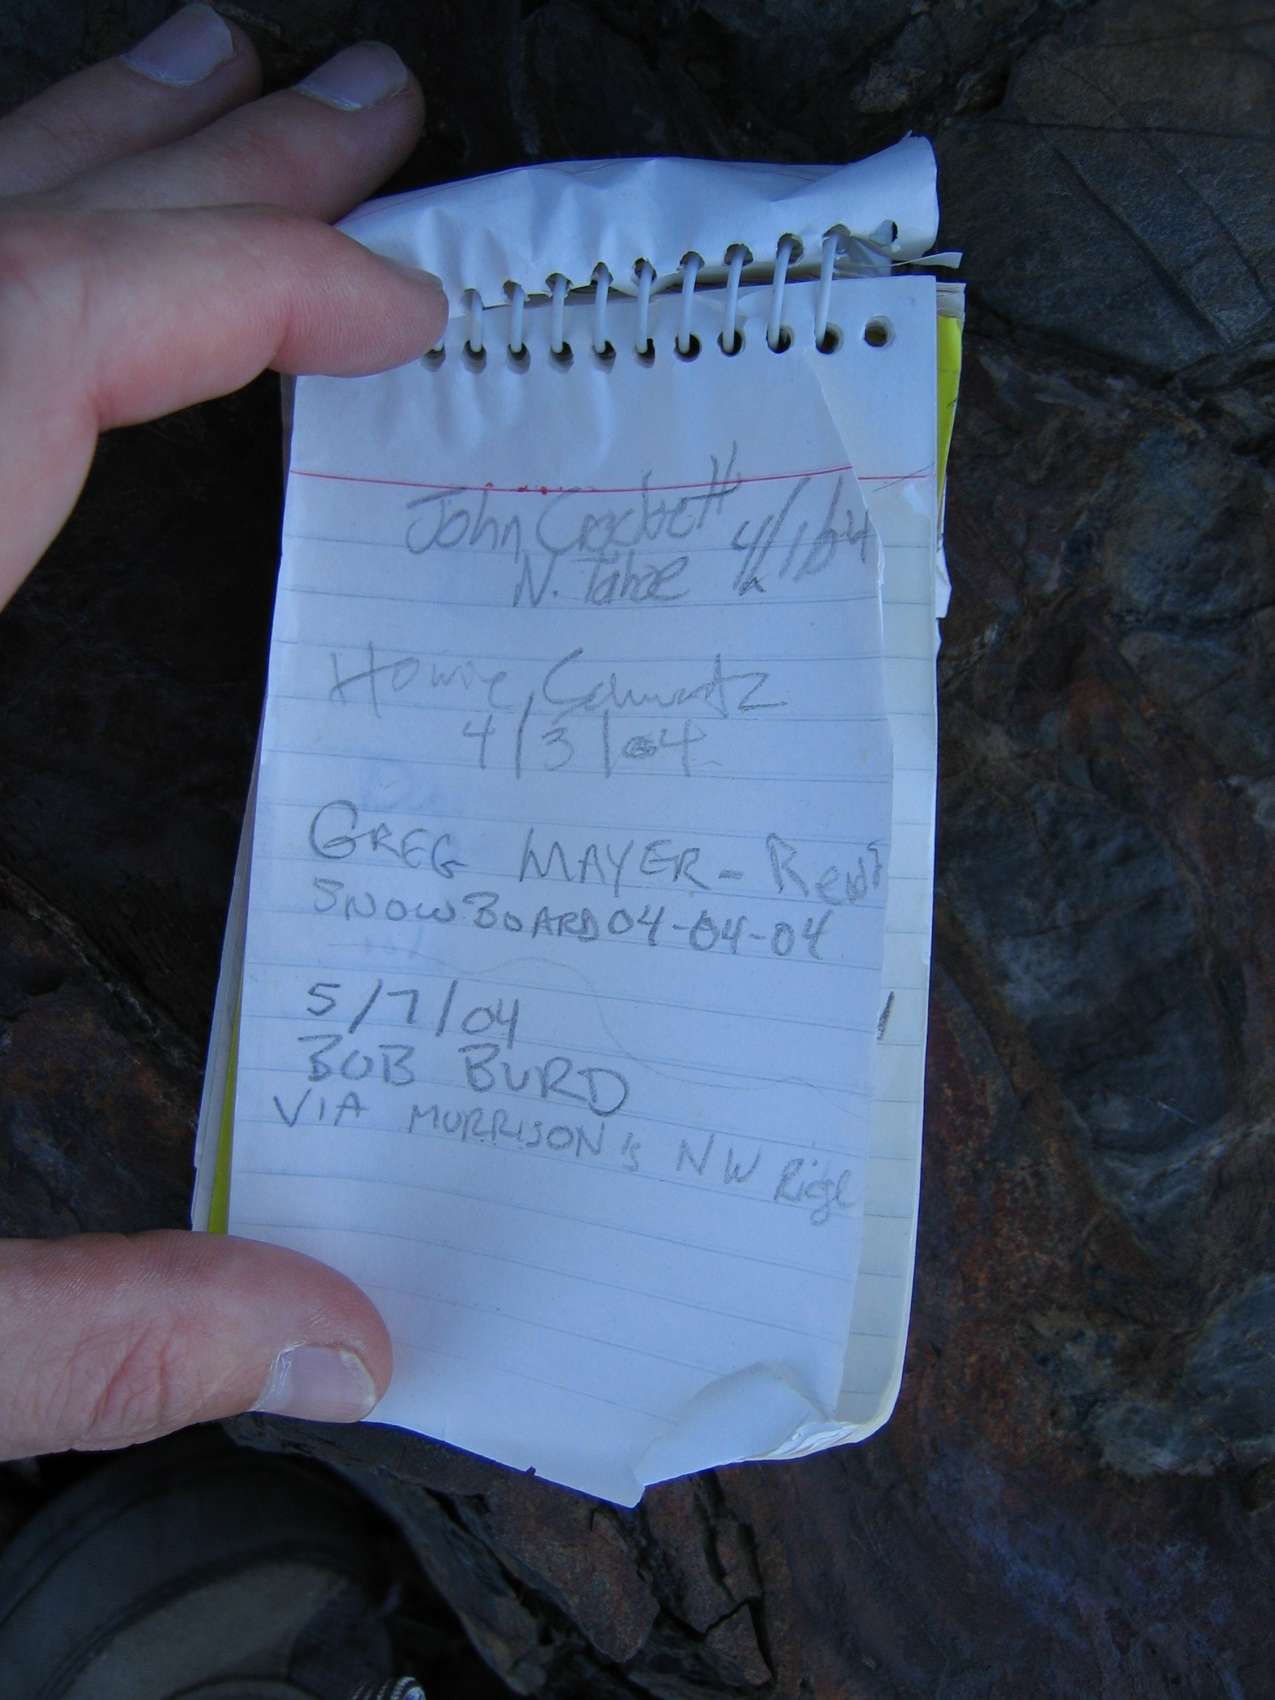 John Crockett 4/1/04
N. Tahoe
Howie Schwartz
4/3/04
GREG MAYER - Reno
SNOWBOARD 04-04-04
5/7/04
BOB BURD
VIA MORRISON'S NW Ridge